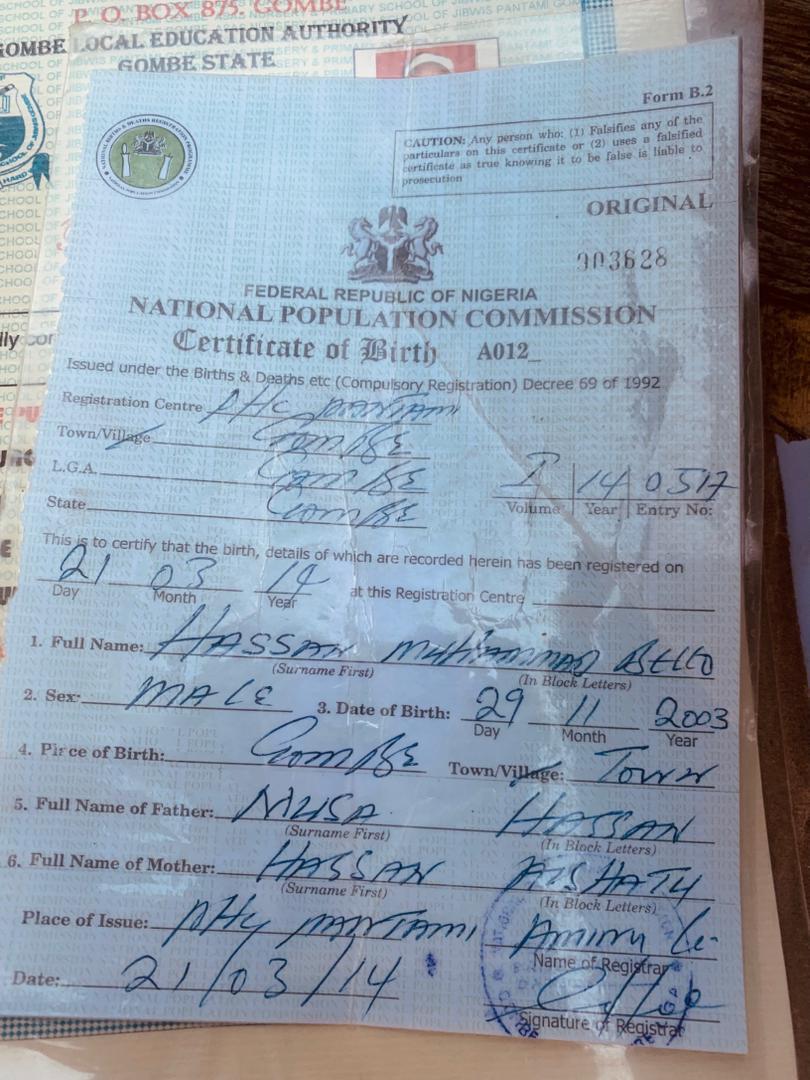 P. O. BOX 875. GOMBE
GOMBE LOCAL EDUCATION AUTHORITY
GOMBE STATE
Form B.2
CAUTION: Any person who: (1) Falsifies any of the
particulars on this certificate or (2) uses a falsified
certificate as true knowing it to be false is liable to
prosecution
NATIONAL BIRTHS & DEATHS REGISTRATION PROGRAMME
NATIONAL POPULATION COMMISSION
ORIGINAL
903628
FEDERAL REPUBLIC OF NIGERIA
NATIONAL POPULATION COMMISSION
Certificate of Birth A012_
Issued under the Births & Deaths etc (Compulsory Registration) Decree 69 of 1992
Registration Centre PHC PANTAMI
Town/Village GOMBE
L.G.A. GOMBE
I 14 0517
Volume Year Entry No:
State GOMBE
This is to certify that the birth, details of which are recorded herein has been registered on
21 03 14 at this Registration Centre
Day Month Year
1. Full Name: HASSAN MUHAMMAD BELLO
(Surname First) (In Block Letters)
2. Sex: MALE 3. Date of Birth: 29 11 2003
Day Month Year
4. Place of Birth: GOMBE Town/Village: Town
5. Full Name of Father: MUSA HASSAN
(Surname First) (In Block Letters)
6. Full Name of Mother: HASSAN AISHATU
(Surname First) (In Block Letters)
Place of Issue: PHC PANTAMI Aminu
Name of Registrar
Date: 21/03/14
Signature of Registrar